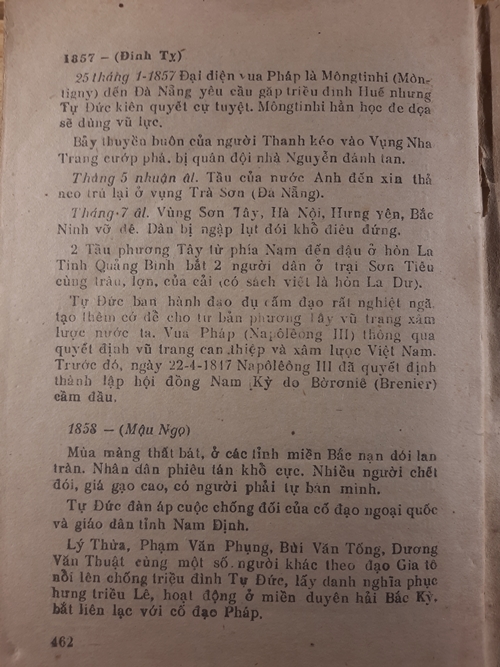 1857 — (Đinh Tỵ)
25 tháng 1-1857 Đại diện vua Pháp là Môngtinhi (Môn-
tigny) đến Đà Nẵng yêu cầu gặp triều đình Huế nhưng
Tự Đức kiên quyết cự tuyệt. Môngtinhi hằn học đe dọa
sẽ dùng vũ lực.
Bảy thuyền buôn của người Thanh kéo vào Vụng Nha
Trang cướp phá, bị quân đội nhà Nguyễn đánh tan.
Tháng 5 nhuận âl. Tầu của nước Anh đến xin thả
neo trú lại ở vụng Trà Sơn (Đà Nẵng).
Tháng 7 âl. Vùng Sơn Tây, Hà Nội, Hưng Yên, Bắc
Ninh vỡ đê. Dân bị ngập lụt đói khổ điêu đứng.
2 Tầu phương Tây từ phía Nam đến đậu ở hòn La
Tinh Quảng Bình bắt 2 người dân ở trại Sơn Tiêu
cùng trâu, lợn, của cải (có sách viết là hòn La Dư).
Tự Đức ban hành đạo dụ cấm đạo rất nghiệt ngã,
tạo thêm cớ để cho tư bản phương Tây vũ trang xâm
lược nước ta. Vua Pháp (Napôlêông III) thông qua
quyết định vũ trang can thiệp và xâm lược Việt Nam.
Trước đó, ngày 22-4-1847 Napôlêông III đã quyết định
thành lập hội đồng Nam Kỳ do Bờrơniê (Brenier)
cầm đầu.
1858 — (Mậu Ngọ)
Mùa màng thất bát, ở các tỉnh miền Bắc nạn đói lan
tràn. Nhân dân phiêu tán khổ cực. Nhiều người chết
đói, giá gạo cao, có người phải tự bán mình.
Tự Đức đàn áp cuộc chống đối của cố đạo ngoại quốc
và giáo dân tỉnh Nam Định.
Lý Thừa, Phạm Văn Phụng, Bùi Văn Tống, Dương
Văn Thuật cùng một số người khác theo đạo Gia tô
nổi lên chống triều đình Tự Đức, lấy danh nghĩa phục
hưng triều Lê, hoạt động ở miền duyên hải Bắc Kỳ,
bắt liên lạc với cố đạo Pháp.
462